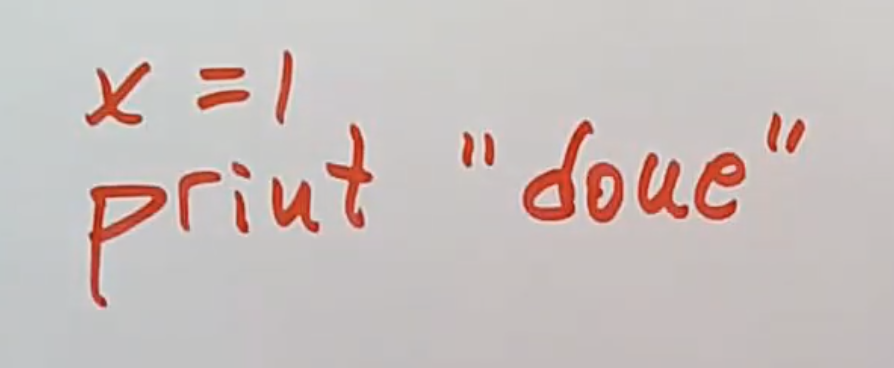 x = 1
print "done"